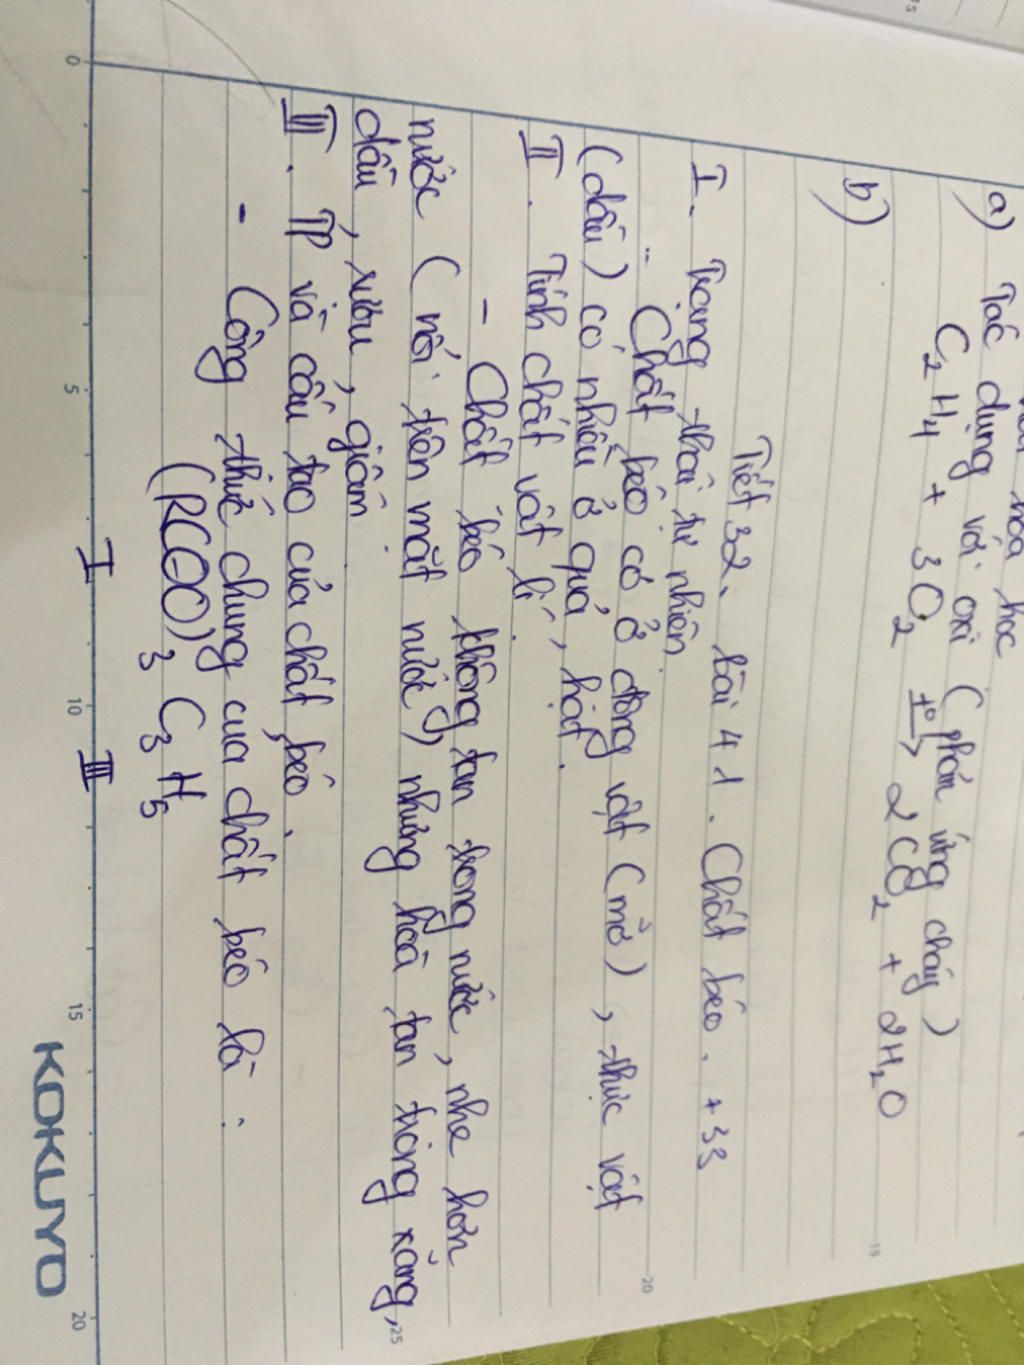 hóa học
a) Tác dụng với oxi (phản ứng cháy)
C2H4 + 3O2 t° → 2CO2 + 2H2O
b)
Tiết 32. bài 41. Chất béo. + 33
I. Trạng thái tự nhiên.
- Chất béo có ở động vật (mỡ), thực vật
(dầu) có nhiều ở quả, hạt.
II. Tính chất vật lí.
- Chất béo không tan trong nước, nhẹ hơn
nước (nổi trên mặt nước) nhưng hoà tan trong xăng,
dầu, rượu, giấm.
III. TP và cấu tạo của chất béo.
- Công thức chung của chất béo là:
(RCOO)3 C3H5
I III
0 5 10 15 20
KOKUYO
15
20
25